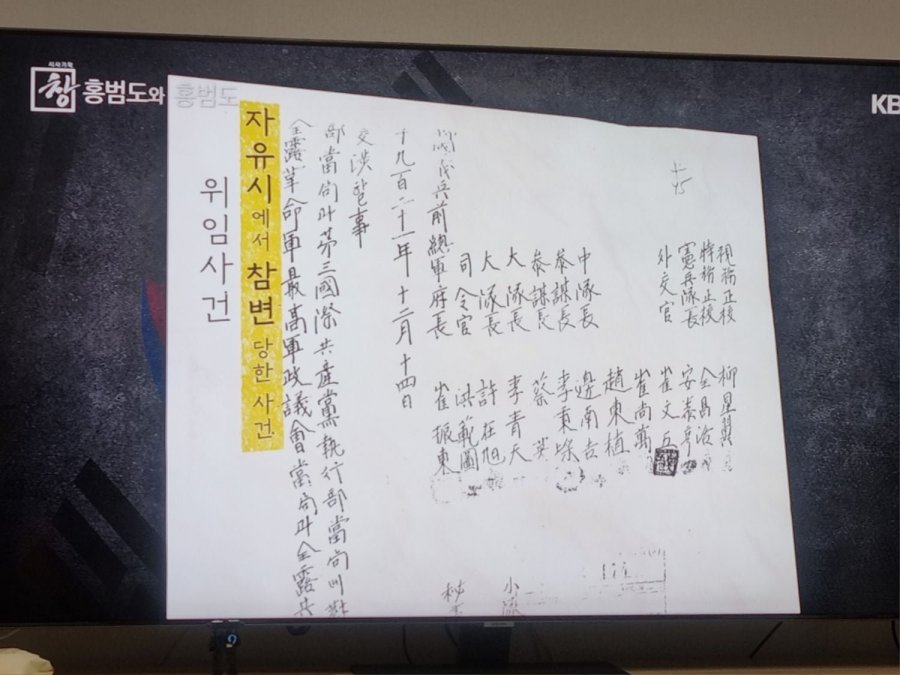 시사기획
창 홍범도와 홍범도
KB
위임사건
자유시에서 참변 당한 사건
全露革命軍最高軍政議會當局과全露共
部當局과第三國際共産黨執行部當局에
交涉할事
十九百二十一年 十二月 十四日
兵前總軍府長 崔振東
司令官 洪範圖
大隊長 許在旭
大隊長 李青天
參謀長 蔡英
參謀長 李秉
中隊長 邊南吉
趙東植
崔尚萬
外交官 崔文
憲兵隊長 安泰
特務正校 全昌
正校 柳星翼